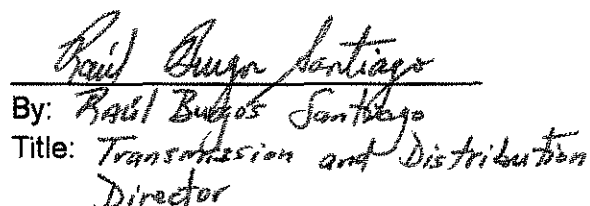 Raúl Burgos Santiago
By: Raúl Burgos Santiago
Title: Transmission and Distribution
Director